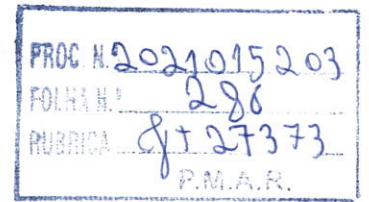 PROC. N. 2021015203
FOLHA N.º 286
RUBRICA 27373
P.M.A.R.